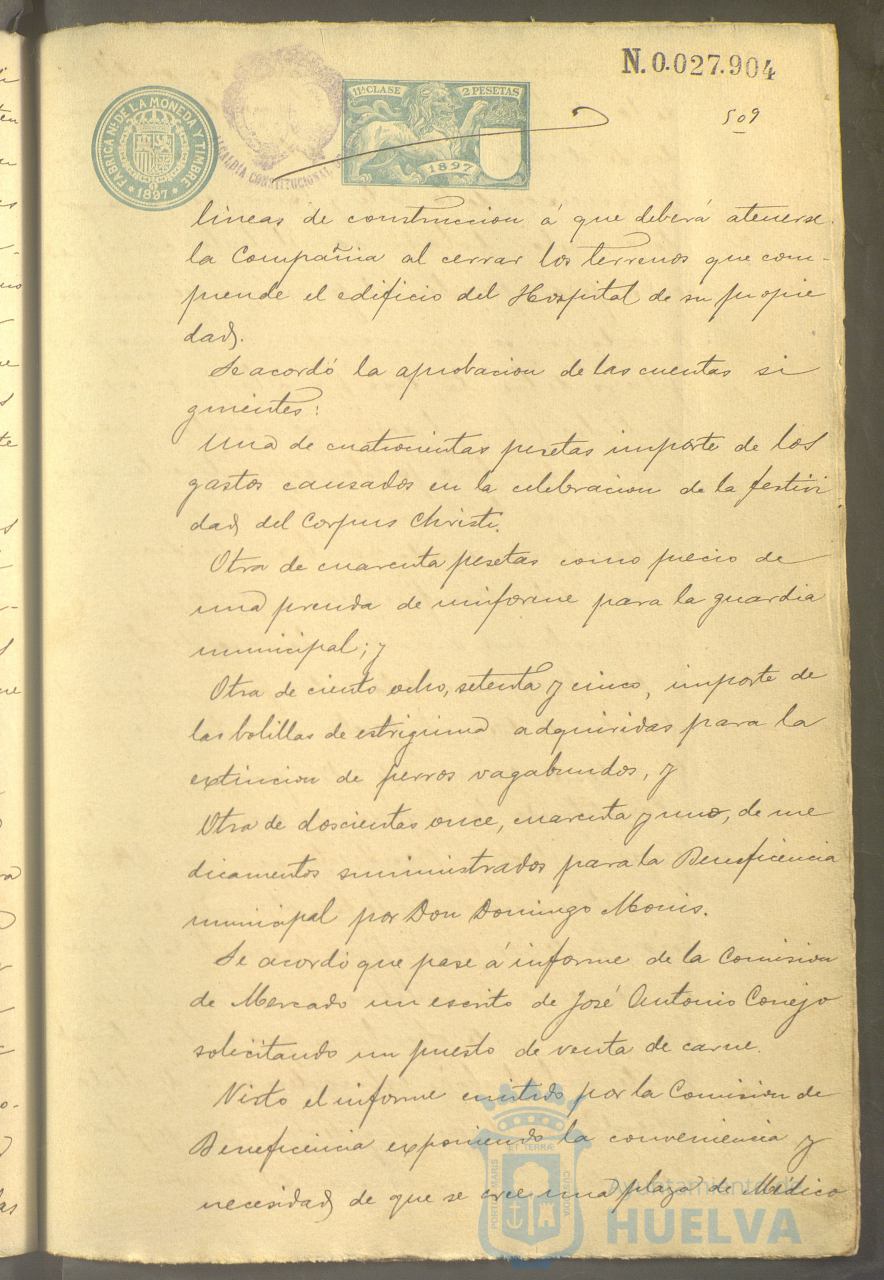 N. 0.027.904
509
FÁBRICA Nal DE LA MONEDA Y TIMBRE
* 1897 *
ALCALDÍA CONSTITUCIONAL
11ª CLASE 2 PESETAS
1897
lineas de construccion á que deberá atenerse
la Compañia al cerrar los terrenos que com-
prende el edificio del Hospital de su propie
dad.
Se acordó la aprobacion de las cuentas si
guientes:
Una de cuatrocientas pesetas importe de los
gastos causados en la celebracion de la festivi
dad del Corpus Christi.
Otra de cuarenta pesetas como precio de
una prenda de uniforme para la guardia
municipal; y
Otra de ciento ocho, setenta y cinco, importe de
las bolillas de estrignina adquiridas para la
extincion de perros vagabundos, y
Otra de doscientas once, cuarenta y uno, de me
dicamentos suministrados para la Beneficencia
municipal por Don Domingo Monis.
Se acordó que pase á informe de la Comision
de Mercado un escrito de José Antonio Conejo
solicitando un puesto de venta de carne.
Visto el informe emitido por la Comision de
Beneficencia exponiendo la conveniencia y
necesidad de que se cree una plaza de Médico
PORTUS MARIS ET TERRAE CUSTODIA
Ayuntamiento de
HUELVA